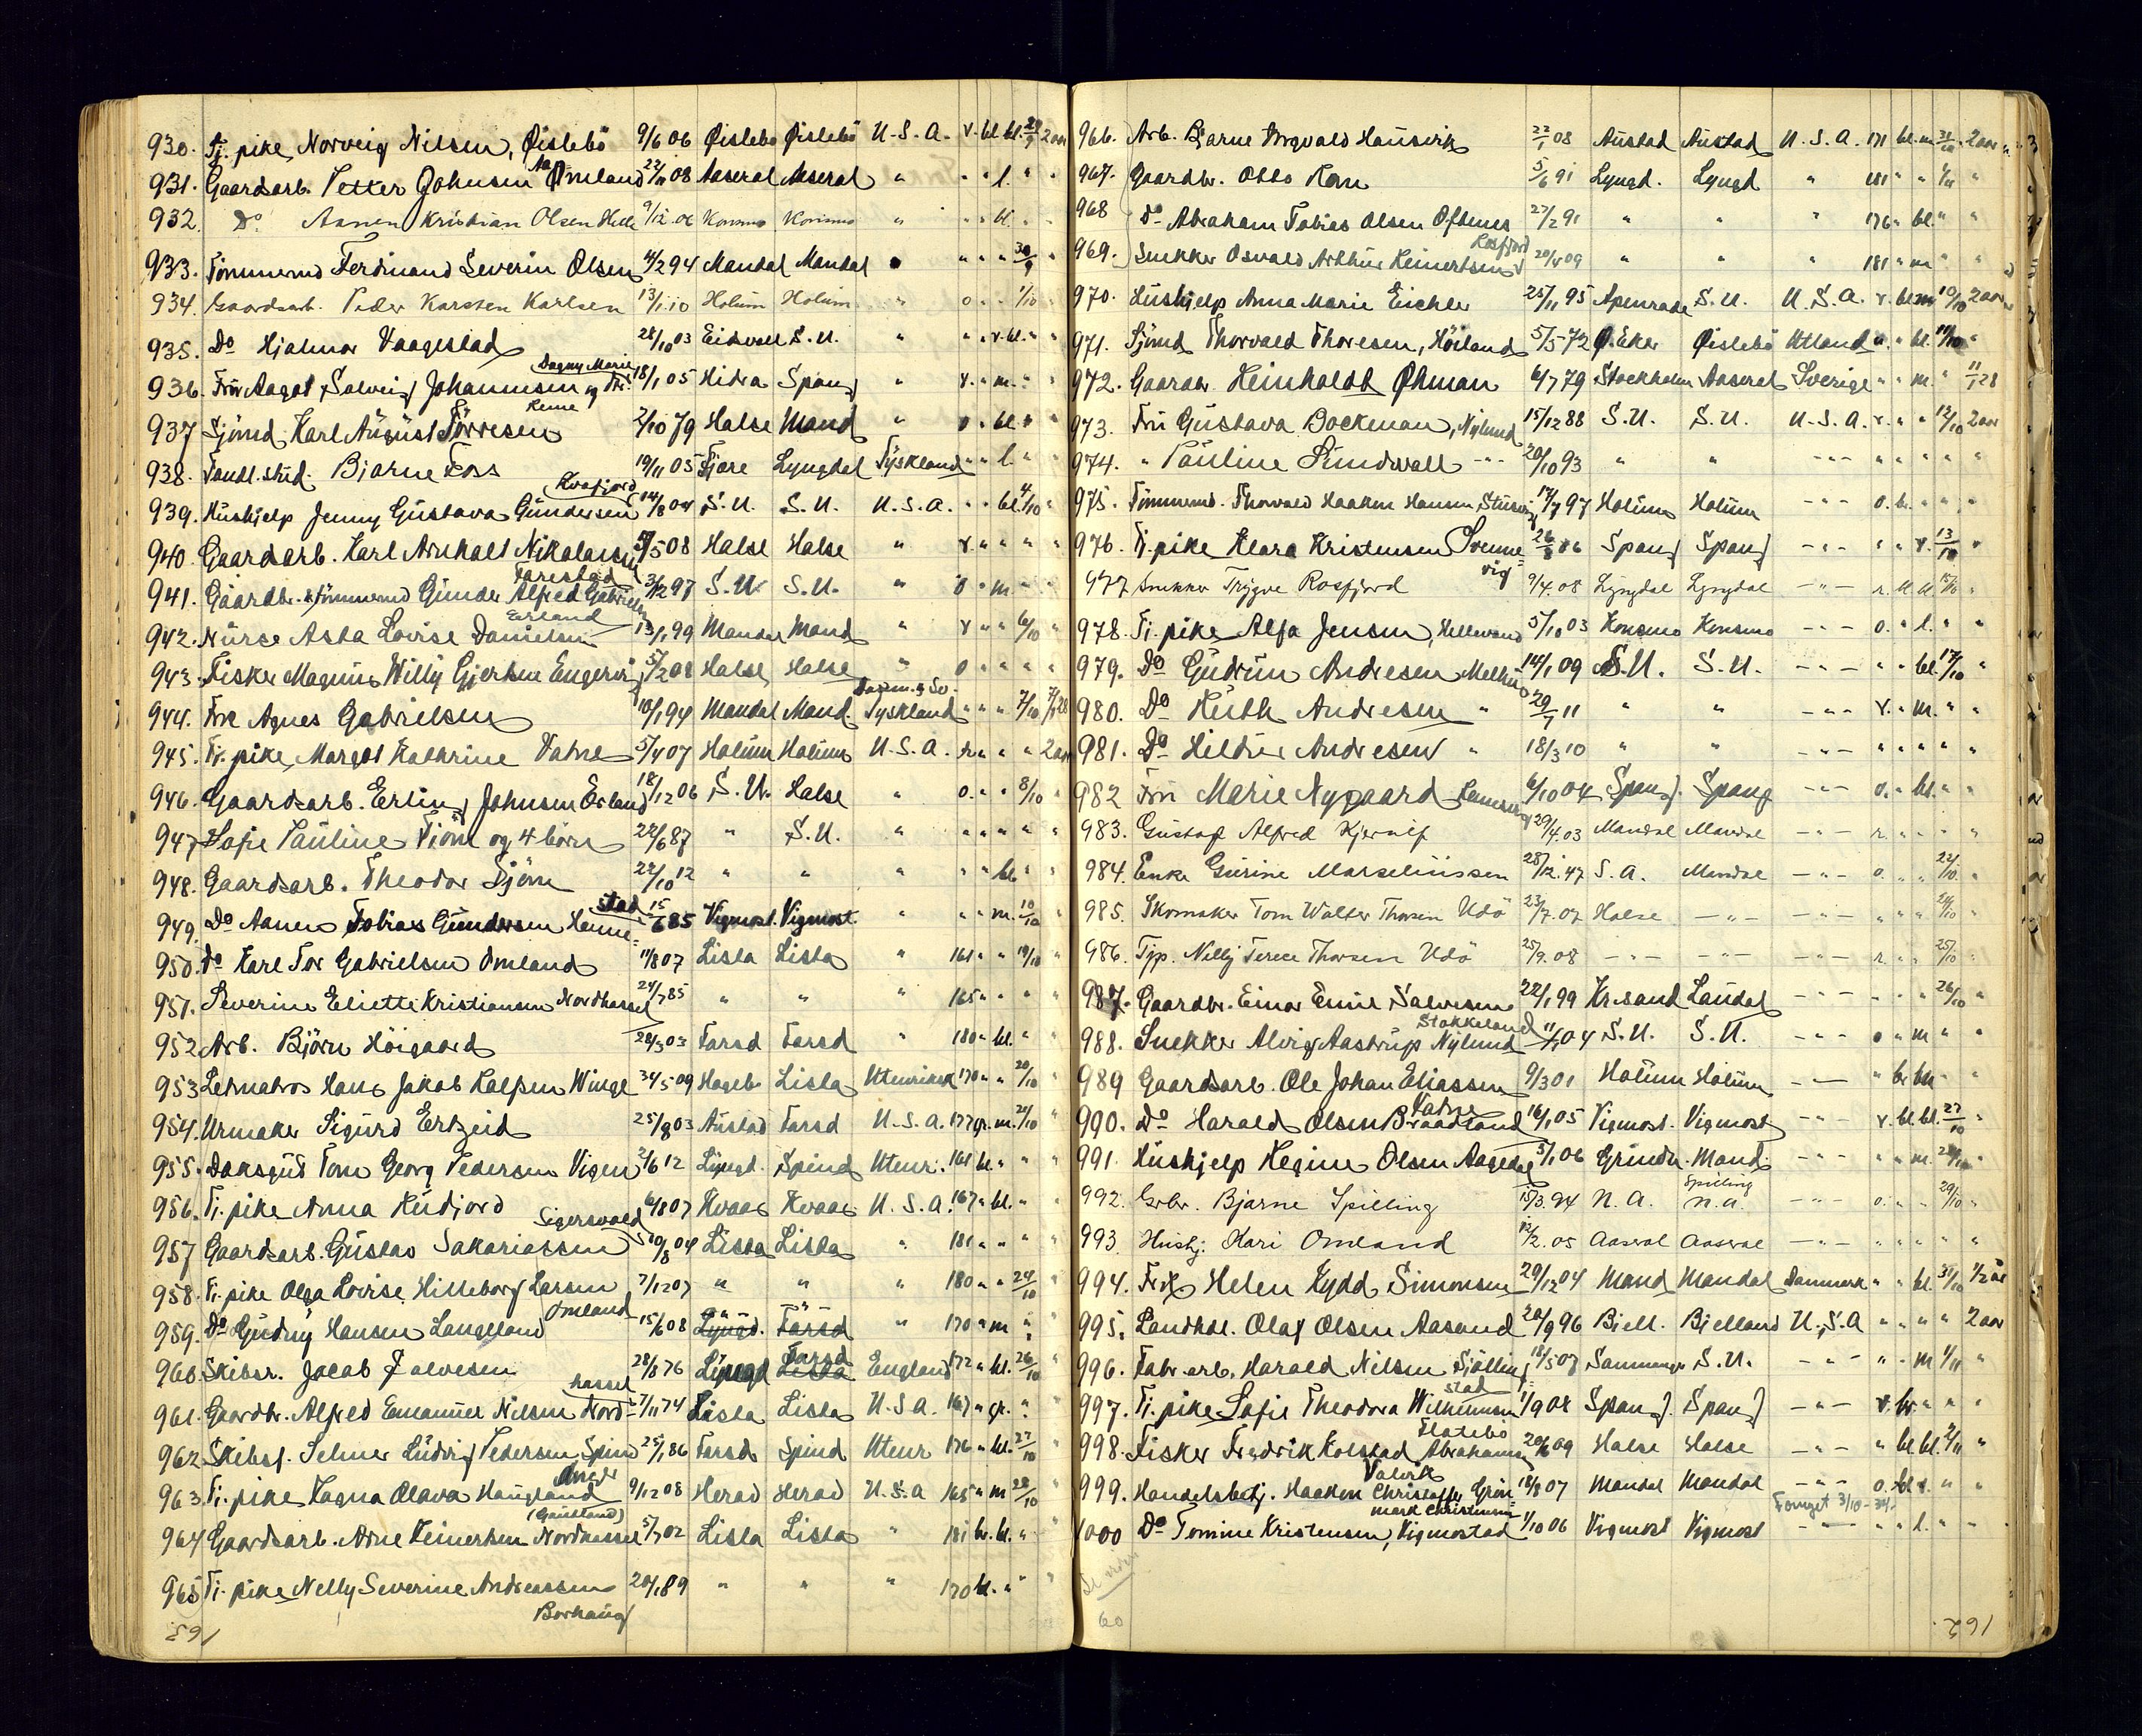 930. Tj. pike, Norveig Nilsen, Øislebö 9/6 06 Øislebö Øislebö U.S.A. v. bl. bl. 2 aar
931. Gaardsarb. Petter Johnsen Omland 22/11 08 Aaseral Aaseral " " " l. " "
932. Do Aanen Kristian Olsen Helle 9/12.06 Konsmo Konsmo " " " bl. " "
933. Tömmermd Ferdinand Severin Olsen 14/2 94 Mandal Mandal " " " 30/9 "
934. Gaardsarb. Peder Karsten Karlsen 13/1.10 Holum Holum " o. " " 1/10 "
935. Do Hjalmar Vaagestad 28/10 03 Eidsvoll S.U. " " v. bl. " "
936. Fru Aagot Solveig Johannesen og Dagny Marie 18/1 05 Hidra Spang " v. " m. " "
937 Sjömd Karl August Törresen 2/10 79 Halse Mand " o. bl. " "
938. Handl. stud. Bjarne Foss 19/11 05 Fjære Lyngdal Tyskland " " l. " "
939. Hushjelp Jenny Gustava Gundersen Kvafjord 14/8 04 S.U. S.U. U.S.A. " " bl. 4/10 "
940. Gaardsarb. Karl Arnholt Nikolaisen 5/5 08 Halse Halse " v. " " " "
941. Gaardbr. & tömmermd Gunder Alfred Gabrielsen Tarestad 3/12 97 S.U. S.U. " o " m " "
942. Nurse Asta Lovise Danielsen Erland 13/1 99 Mandal Mand " v " " 6/10 "
943. Fisker Magnus Willy Gjertsen Engervig 5/2 08 Halse Halse " o " " " "
944. Fru Agnes Gabrielsen 10/1 94 Mandal Mand. Danm. & Sv. Tyskland " " " 7/10 28
945. Tj. pike, Margot Kathrine Vatne 5/4 07 Holum Holum U.S.A. " " " " 2 aar
946. Gaardsarb. Erling Johnsen Erland 18/12 06 S.U. Halse " o. " " 8/10 "
947 Sofie Pauline Tjöm og 4 börn 22/6 87 " S.U. " " " " " "
948. Gaardsarb. Theodor Tjöm 22/10 12 " " " " " bl. " "
949. Do Aanen Tobias Gundersen Hennestad 15/6 85 Vigmost. Vigmost. " " " m. 10/10 "
950. Do Karl Tor Gabrielsen Omland 11/8 07 Lista Lista " 161 " " 19/10 "
951. Severine Eliette Kristiansen Nordhassel 24/7 85 " " " 165 " " " "
952. Arb. Björn Höigaard 28/3 03 Farsd Farsd " 180 " bl. " "
953 Letmatros Hans Jakob Kalpen Winge 31/5 09 Hægeb. Lista Utenriksk 170 " " 20/10 "
954. Urmaker Sigurd Ertzeid 25/8 03 Austad Farsd U.S.A. 177 gr. m. 21/10 "
955. Daksgut Tom Georg Pedersen Vigen 2/6 12 Lyngd. Spind Utenr. 161 bl. " " "
956. Tj. pike Anna Rudjord 6/8 07 Kvaas Kvaas U.S.A. 167 " bl. " "
957 Gaardsarb. Gustav Sakariassen Sigersvold 20/8 04 Lista Lista " 181 " " " "
958. Tj. pike Olga Lovise Hilleborg Larsen Omland 7/12 07 " " " 180 " " 24/10
959. Do Gudny Hansen Langeland 15/6 08 Lyngd. Farsd " 170 " m " "
960. Skibsr. Jacob Salvesen 28/1 76 Lyngd Farsd England 172 " bl. 26/10
961. Gaardbr. Alfred Emanuel Nilsen Nordhassel 7/11 74 Lista Lista U.S.A. 167 " gr. "
962. Skibsf. Selmer Ludvig Pedersen Spind 25/1 86 Farsd. Spind Utenr 176 " bl. 27/10
963 Tj. pike Ragna Olava Haugland (Gausland) 9/12 08 Herad Herad U.S.A 165 " m 28/10 "
964 Gaardsarb. Arne Reinertsen Nordhassel 5/7 02 Lista Lista " 181 br. bl. " "
965 Tj. pike Nelly Severine Andreassen Borhaug 20/1 89 " " " 170 bl. " " "
163
966. Arb. Bjarne Ingvald Hausvik 22/1 08 Austad Austad U.S.A. 171 bl. m. 2 aar
967. Gaardbr. Otto Kom 5/6 91 Lyngd. Lyngd " 181 " " 1/11 "
968 Do Abraham Tobias Olsen Oftenes 27/2 91 " " " 176 " bl. " "
969. Snekker Osvald Arthur Reinertsen Rosfjord 20/4 09 " " " 181 " m " "
970. Hushjelp Anna Marie Eichler 25/11 95 Apenrade S.U. U.S.A. v. bl. m 10/10 2 aar
971. Sjömd Thorvald Thoresen, Höiland 5/5 72 Ø. Eker Øislebö Utland " " bl. 11/10 "
972. Gaardbr. Reinholdt Øhman 6/7 79 Stockholm Aaseral Sverige " " m. " 11/1 28
973. Fru Gustava Bockman, Nylund 15/12 88 S.U. S.U. U.S.A. v. " " 12/10 2 aar
974. " Pauline Sundvall -"- 20/10 93 " " -"- " " " " "
975. Tömmermd. Thorvald Haaken Hansen 17/7 97 Holum Holum -"- o. br. " " "
976. Tj. pike Klara Kristensen Svennevig 26/8 06 Spang Spang -"- " " v. 13/10 "
977 Snekker Trygve Rosfjord 9/4.08 Lyngdal Lyngdal -"- r. bl. bl. 15/10 "
978. Tj. pike Alfa Jensen, Hellevand 5/10 03 Konsmo Konsmo -"- o. " l. " "
979. Do Gudrun Andresen Melhus 14/1 09 S.U. S.U. -"- " " bl. 17/10 "
980. Do Ruth Andresen " 29/1 11 " " -"- v. " m. " "
981. Do Hildur Andresen " 18/3 10 " " -"- " " " " "
982 Fru Marie Nygaard 6/10 04 Spang. Spang -"- o. " bl. " "
983. Gustaf Alfred Kjernif 29/4.03 Mandal Mandal -"- r. " " " "
984. Enke Gurine Marseliussen 28/12.47 S.A. Mandal -"- o. " " 22/10 "
985. Skomaker Tom Walter Thorsen Udö 23/7.07 Halse -"- -"- " " " 24/10 "
986. Tjp. Nelly Terese Thorsen Udö 25/9.08 -"- -"- -"- r. " " 25/10 "
987. Gaardbr. Einar Emil Salvesen 22/1 99 Kr.sand Laudal -"- " " " 26/10 "
988. Snekker Alvig Aastrup Nylund Stokkeland 11/1 04 S.U. S.U. -"- o " m " "
989 Gaardsarb. Ole Johan Eliassen 9/3 01 Holum Holum -"- " br bl. " "
990. Do Harald Olsen Braadland 16/1 05 Vigmost. Vigmost -"- v. bl. bl. 27/10 "
991. Hushjelp Regine Olsen Aagedal 5/1 06 Grindh. Mand. -"- " " m. "
992. Grbr. Bjarne Spilling 15/3.94 N.A. Spilling n.a. -"- o. " " 29/10 "
993. Hushj. Kari Omland 12/2.05 Aaseral Aaseral -"- " " " " "
994. Frk Helen Kydd Simonsen 29/12 04 Mand Mandal Danmark " " bl. 30/10 1/2 år
995. Landhdl. Olaf Olsen Aasand 20/9 96 Biell. Bjelland U.S.A " " " " 2 aar
996. Fabr. arb. Harald Nilsen Sjölling 18/5 07 Samnanger S.U. -"- " " m 1/11 "
997. Tj. pike Sofie Theodora Wilhelmsen 1/9 08 Spang. Spang -"- v. br. " " "
998. Fisker Fredrik Kolstad Abrahamsen Flatebö 20/6 09 Halse Halse -"- " bl. bl. 2/11 "
999. Handelsbetj. Haaken Christoffer Grön Valvik 18/8 07 Mandal Mandal -"- o. bl v. " "
1000 Do Tomine Kristensen, Vigmostad 1/10 06 Vigmost Vigmost -"- " " l. " "
60
162.